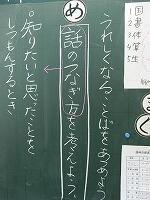 うれしくなることばをあつめよう
め
話のつなぎ方を考えよう。
。知りたいと思ったことを
しつもんするとき
1国
2書
3体
4算
5生